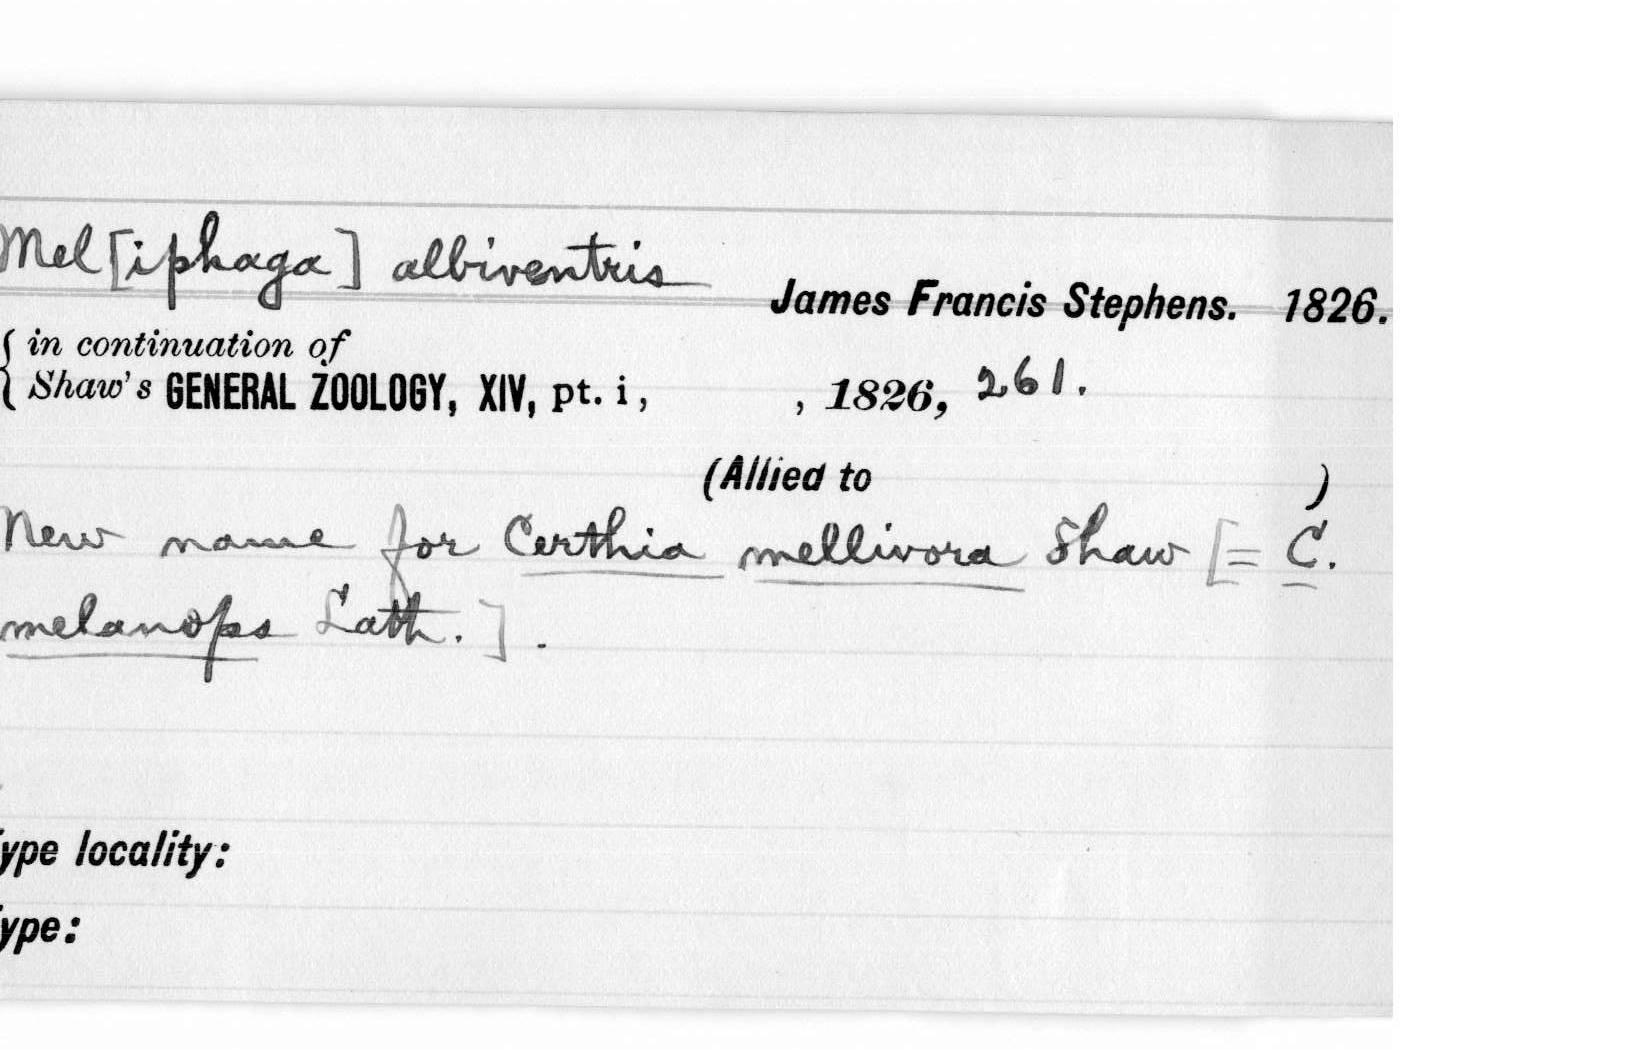 Mel[iphaga] albiventris
James Francis Stephens. 1826.
in continuation of
Shaw's GENERAL ZOOLOGY, XIV, pt. i, , 1826, 261.
(Allied to )
New name for Certhia mellivora Shaw [= C.
melanops Lath.].
ype locality:
ype: